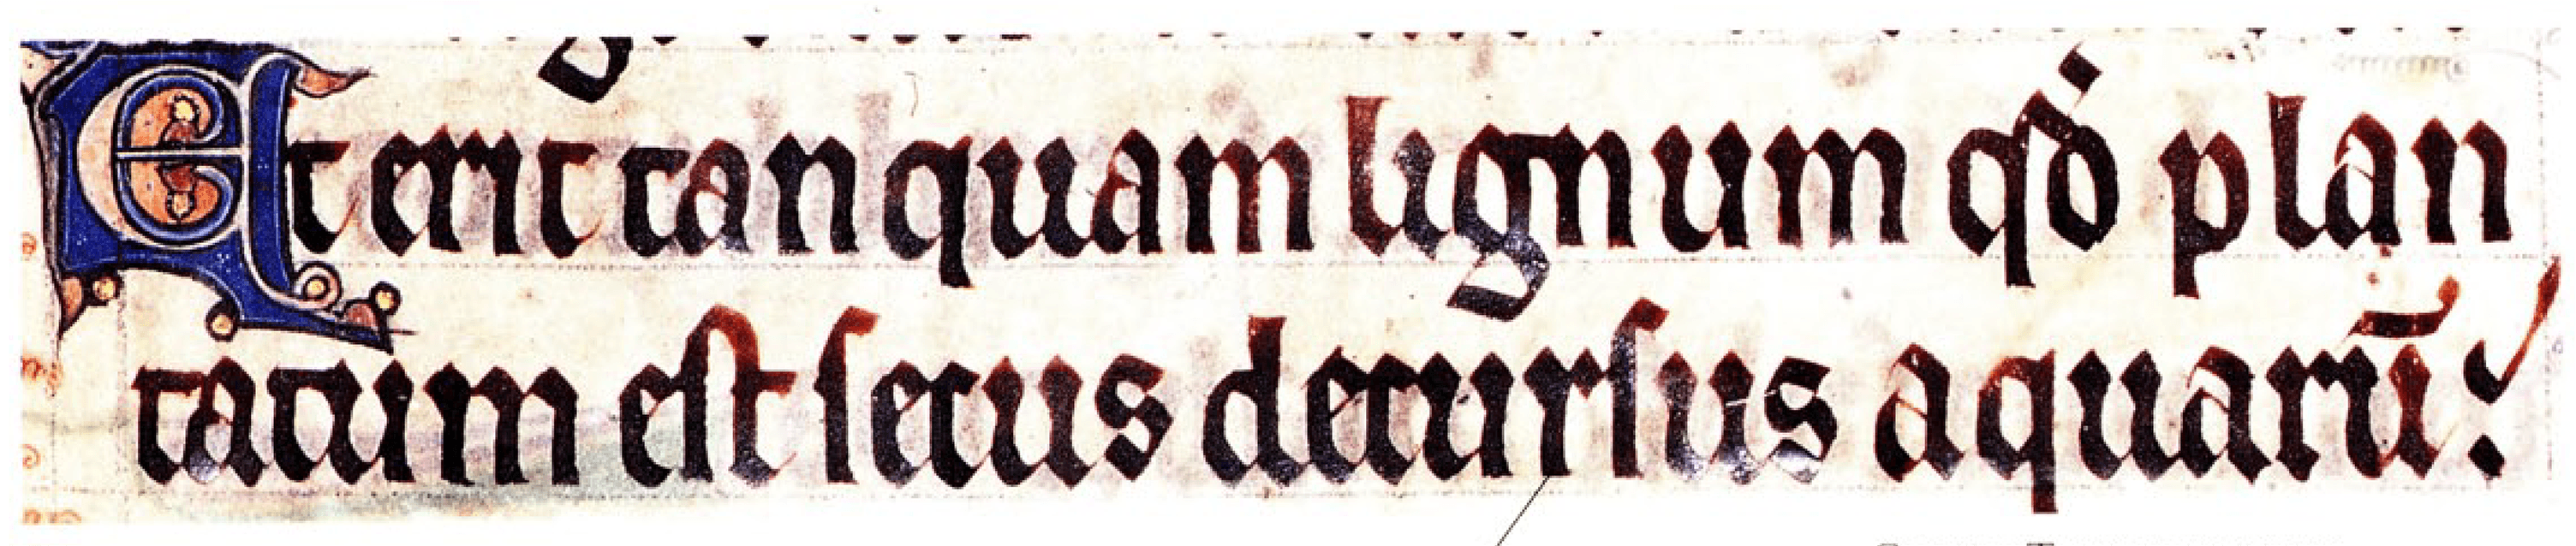 Et erit tanquam lignum qđ plan
tatum est secus decursus aquarū: